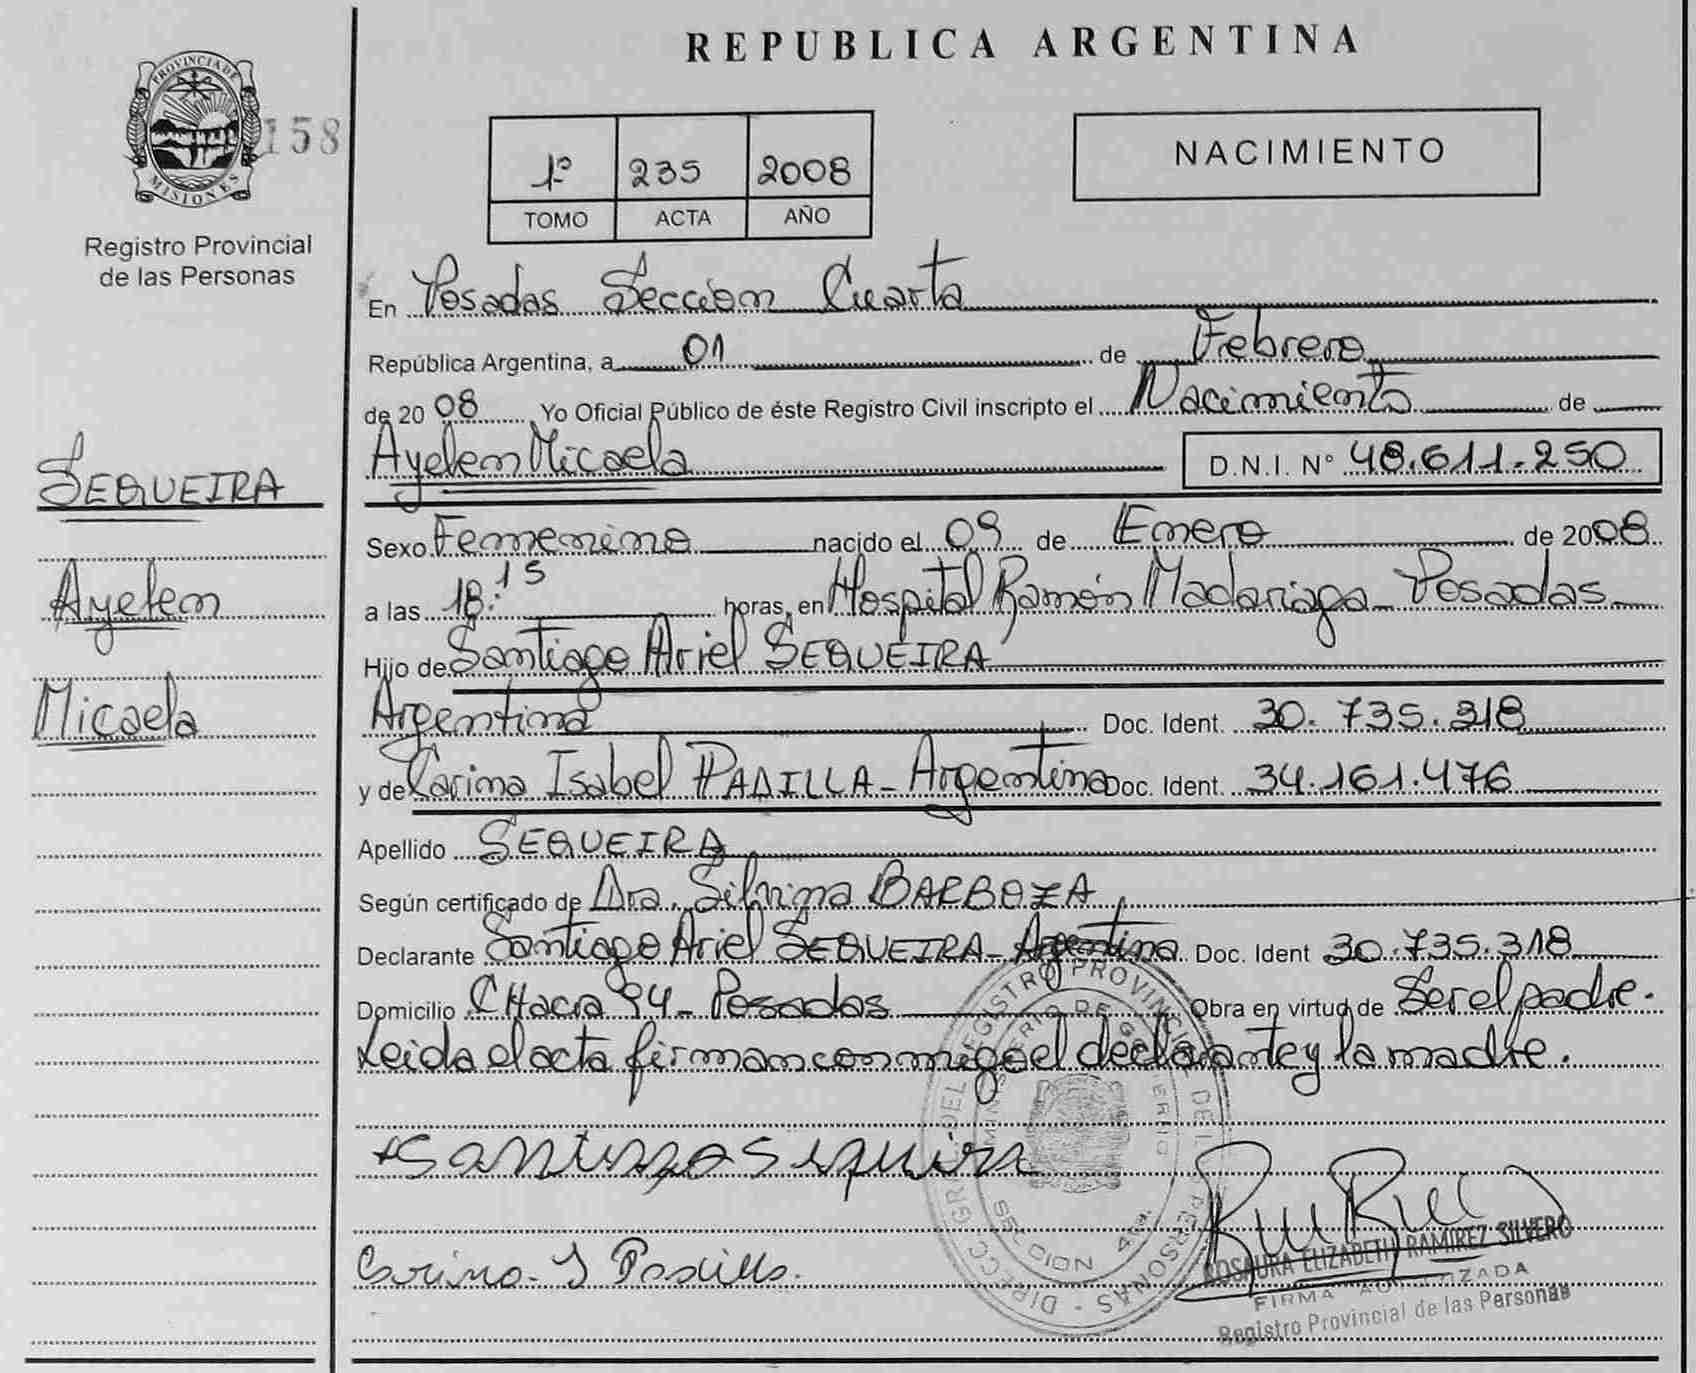 REPUBLICA ARGENTINA
PROVINCIA DE
MISIONES
158
Registro Provincial
de las Personas
1º 235 2008
TOMO ACTA AÑO
NACIMIENTO
En Posadas Sección Cuarta
República Argentina, a 01 de Febrero
de 2008 Yo Oficial Público de éste Registro Civil inscripto el Nacimiento de
Ayelen Micaela D.N.I. Nº 48.611.250
SEQUEIRA
Ayelen
Micaela
Sexo Femenino nacido el 09 de Enero de 2008
a las 18:15 horas, en Hospital Ramón Madariaga - Posadas
Hijo de Santiago Ariel SEQUEIRA
Argentina Doc. Ident. 30.735.318
y de Carina Isabel PADILLA - Argentina Doc. Ident. 34.161.476
Apellido SEQUEIRA
Según certificado de Dra. Silvina BARBOZA
Declarante Santiago Ariel SEQUEIRA - Argentina Doc. Ident 30.735.318
Domicilio CHacra 94 - Posadas Obra en virtud de Ser el padre.
Leida el acta firman conmigo el declarante y la madre.
Santiago Sequeira
Carina I Padilla.
ROSAURA ELIZABETH RAMIREZ SILVERO
FIRMA AUTORIZADA
Registro Provincial de las Personas